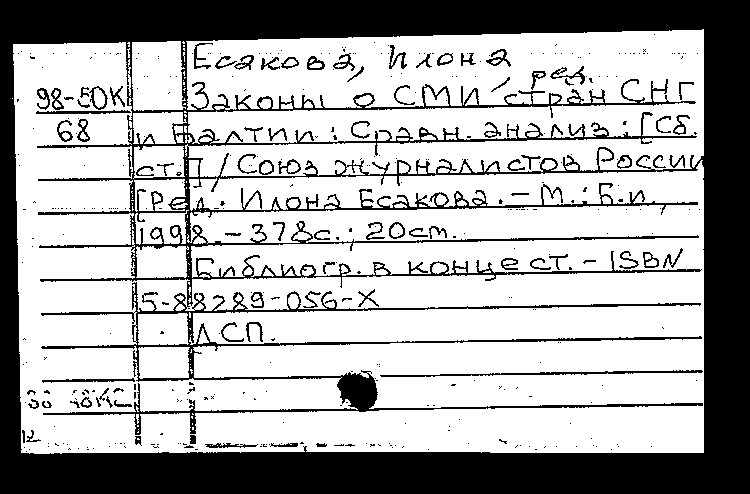 Есакова, Илона
ред.
98-5ОК Законы о СМИ стран СНГ
68 и Балтии : Сравн. анализ : [Сб.
ст.] / Союз журналистов России
[Ред. Илона Есакова. - М. : Б.и.,
1998. - 378с. ; 20ст.
Библиогр. в конце ст. - ISBN
5-88289-056-X
ДСП.
12